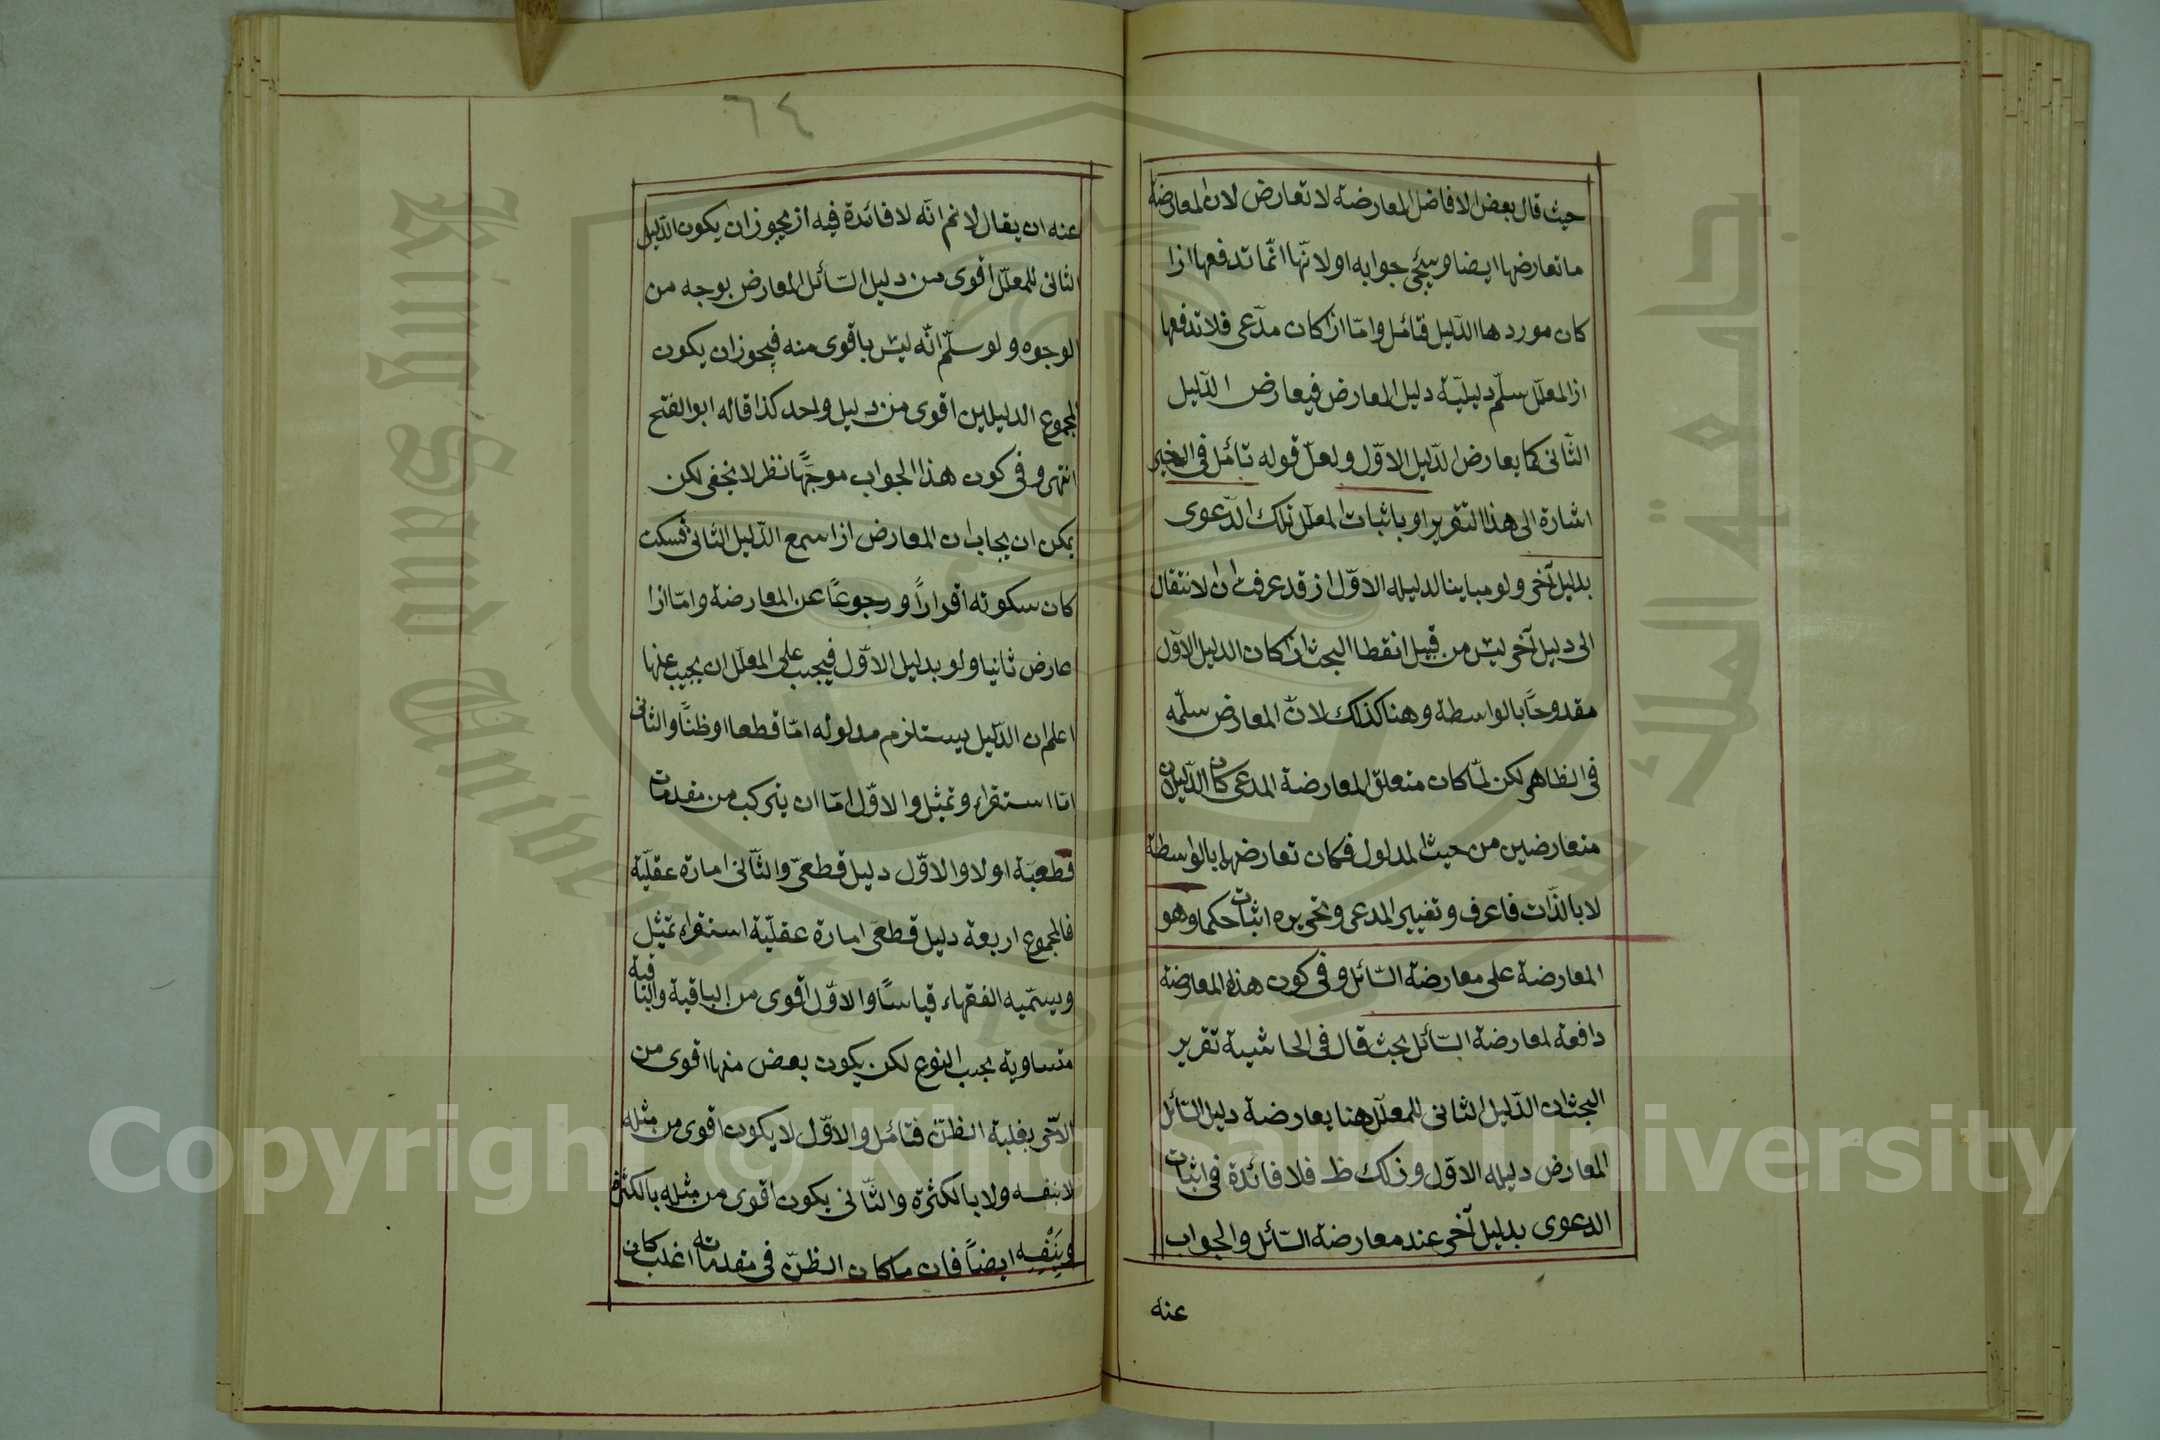 حيث قال بعض الافاضل المعارضة لا تعارض لان المعارضة
ما تعارضها ايضا وسيجئ جوابه اولا نها انما تدفعها اذا
كان موردها الدليل فتأمل واما اذا كان مدعى فلا تدفعها
اذ المعلل سلم دليلية دليل المعارض فيعارض الدليل
الثانى كما يعارض الدليل الاول ولعل قوله تأمل فى الخير
اشارة الى هذا التقرير او باثبات المعلل تلك الدعوى
بدليل آخر ولو مباينا لدليله الاول اذ قد عرفت ان الانتقال
الى دليل آخر ليس من قبيل انقطا البحث اذا كان الدليل الاول
مقدوحًا بالواسطة وهنا كذلك لان المعارض سلمه
فى الظاهر لكن لما كان متعلق المعارضة المدعى كان الدليلان
متعارضين من حيث المدلول فكان تعارضهما بالواسطة
لا بالذات فاعرف وتغيير المدعى وتحريره اثبات حكما وهو
المعارضة على معارضة السائل وفى كون هذه المعارضة
دافعة لمعارضة السائل بحث قال فى الحاشية تقرير
البحث ان الدليل الثانى للمعلل هنا يعارضة دليل السائل
المعارض دليله الاول وذلك ظ فلا فائدة فى اثبات
الدعوى بدليل آخر عند معارضة السائل والجواب
عنه
٦٤
عنه ان يقال لا نم انه لا فائدة فيه اذ يجوز ان يكون الدليل
الثانى للمعلل اقوى من دليل السائل المعارض بوجه من
الوجوه ولو سلم انه ليس باقوى منه فيجوز ان يكون
مجموع الدليلين اقوى من دليل واحد كذا قاله ابو الفتح
انتهى وفى كون هذا الجواب موجهًا نظر لا يخفى لكن
يمكن ان يجاب ان المعارض اذا سمع الدليل الثانى فسكت
كان سكوته اقرارًا ورجوعًا عن المعارضة واما اذا
عارض ثانيا ولو بدليل الاول فيجب على المعلل ان يجيب عنها
اعلم ان الدليل يستلزم مدلوله اما قطعا او ظنًا والثانى
اما استقراء وتمثيل والاول اما ان يتركب من مقدمات
قطعية اولا والاول دليل قطعى والثانى امارة عقلية
فالمجموع اربعة دليل قطعى امارة عقلية استقراء تمثيل
ويسميه الفقهاء قياسًا والاول اقوى من الباقية والباقية
متساوية بحسب النوع لكن يكون بعض منها اقوى من
الآخر بغلبة الظن فتأمل والاول لا يكون اقوى من مثله
لا بنفسه ولا بالكثرة والثانى يكون اقوى من مثله بالكثرة
وبنفسه ايضًا فان ما كان الظن فى مقدماته اغلب كان
King Saud University
جامعة الملك
1957
Copyright © King Saud University